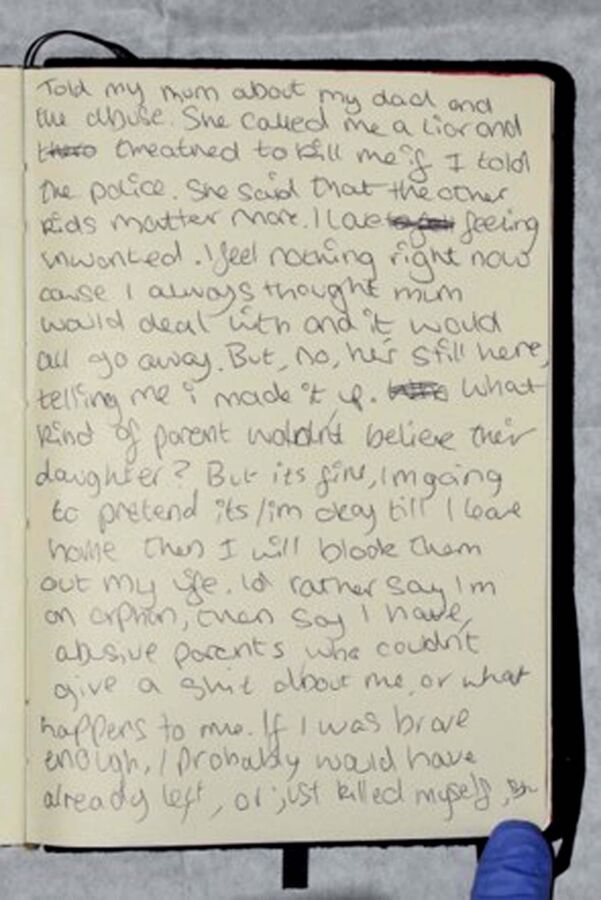 Told my mum about my dad and
the abuse. She called me a liar and
threatned to kill me if I told
the police. She said that the other
kids matter more. I feeling
unwanted. I feel nothing right now
cause I always thought mum
would deal with and it would
all go away. But, no, he's still here,
telling me i made it up. What
kind of parent wouldn't believe their
daughter? But its fine, I'm going
to pretend its/im okay till I leave
home then I will block them
out my life. I'd rather say I'm
an orphan, then say I have,
abusive parents who couldn't
give a shit about me, or what
happens to me. If I was brave
enough, I probably would have
already left, or just killed myself,